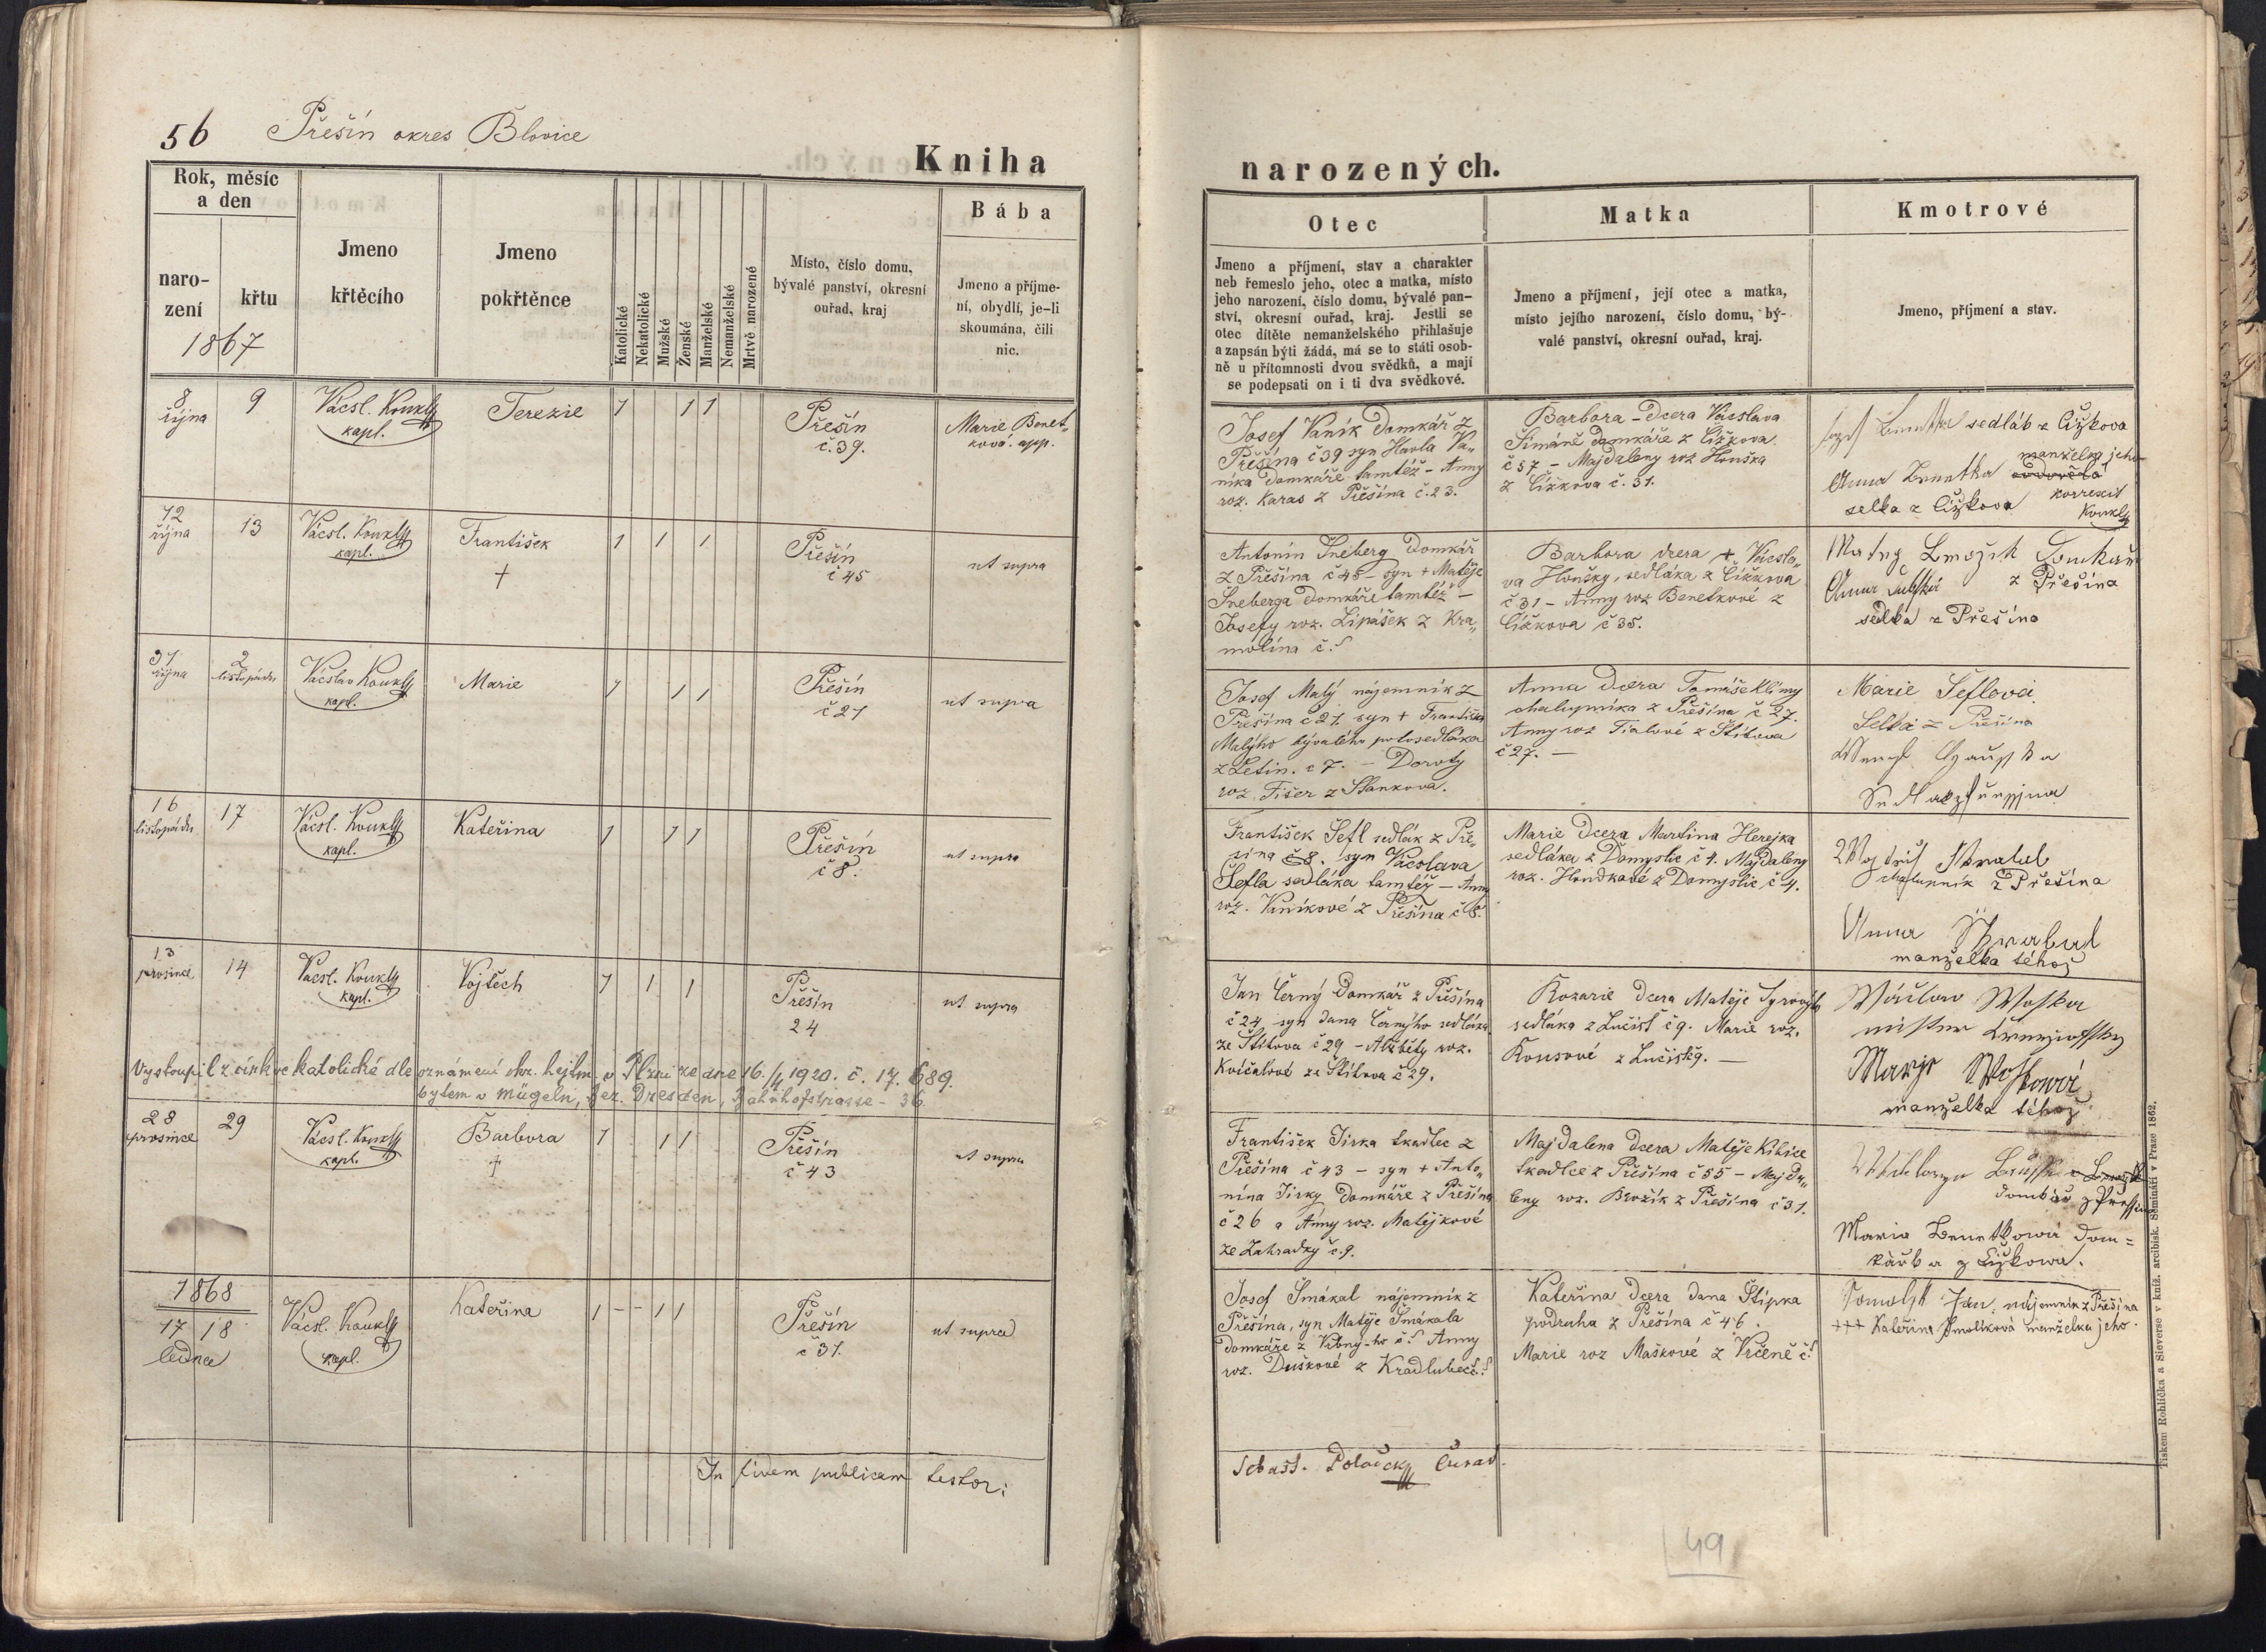 56 Přešín okres Blovice
Kniha
narozených.
Rok, měsíc
a den
naro-
zení
křtu
1867
Jmeno
křtěcího
Jmeno
pokřtěnce
Katolické
Nekatolické
Mužské
Ženské
Manželské
Nemanželské
Mrtvě narozené
Místo, číslo domu,
bývalé panství, okresní
ouřad, kraj
Bába
Jmeno a příjme-
ní, obydlí, je-li
skoumána, čili
nic.
Otec
Jmeno a příjmení, stav a charakter
neb řemeslo jeho, otec a matka, místo
jeho narození, číslo domu, bývalé pan-
ství, okresní ouřad, kraj. Jestli se
otec dítěte nemanželského přihlašuje
a zapsán býti žádá, má se to státi osob-
ně u přítomnosti dvou svědků, a mají
se podepsati on i ti dva svědkové.
Matka
Jmeno a příjmení, její otec a matka,
místo jejího narození, číslo domu, bý-
valé panství, okresní ouřad, kraj.
Kmotrové
Jmeno, příjmení a stav.
8
října
9
Vácsl. Koukl
kapl.
Terezie
1 1 1
Přešín
č. 39.
Marie Benet„
ková. app.
Josef Vaník Domkář z
Přešína č 39 syn Havla Va„
níka Domkáře tamtéž - Anny
roz. Karas z Přešína č. 23.
Barbora - Dcera Vácslava
Šimáně domkáře z Čížkova
č 57 - Majdaleny roz Houška
z Čížkova č. 31.
sedlák z Čižkova
manželka jeho
Anna Benetka
selka z Čižkova
korrexit
Koukl
12
října
13
Vácsl. Koukl
kapl.
František
+
1 1 1
Přešín
č 45
ut supra
Antonín Šneberg Domkář
z Přešína č 45 - syn + Matěje
Šneberga Domkáře tamtéž -
Josefy roz. Lipášek z Kra„
molína č.
Barbora dcera + Vácsla„
va Houšky, sedláka z Čížkova
č 31 - Anny roz Benetkové z
Čížkova č 35.
z Přešína
Anna
selka z Přešína
31
října
2
listopadu
Vácslav Koukl
kapl.
Marie
1 1 1
Přešín
č 21
ut supra
Josef Malý nájemník z
Přešína č 21. syn + Františka
Malýho bývalého polosedláka
z Letin. č 7. - Doroty
roz. Fišer z Stankova.
Anna Dcera Tomáše Klímy
chalupníka z Přešína č 27.
Anny roz Fialové z Štítova
č 27. -
Marie Šeflová
Selka z Přešína
16
listopadu
17
Vácsl. Koukl
kapl.
Kateřina
1 1 1
Přešín
č 8.
ut supra
František Šefl sedlák z Pře„
šína č 8. syn Vácslava
Šefla sedláka tamtéž - Anny
roz. Vaníkové z Přešína č 8.
Marie Dcera Martina Herejka
sedláka z Domyslic č 4. Majdaleny
roz. Hondkové z Domyslic č 4.
chalupník z Přešína
Anna
manželka téhož
13
prosince
14
Vácsl. Koukl
kapl.
Vojtěch
1 1 1
Přešín
24
ut supra
Jan Černý Domkář z Přešína
č 24 syn Jana Černýho sedláka
ze Štítova č 29 - Alžběty roz.
Kvíčalové ze Štítova č 29.
Rozarie Dcera Matěje Syrový
sedláka z Lučišt č 9. Marie roz.
Kousové z Lučišt č 9. -
manželka téhož
Vystoupil z církve katolické dle oznámení okr. hejtm. v Plzni ze dne 16./4 1920. č. 17.689.
bytem v Mügeln, Bez. Dresden, Bahnhofstrasse - 36.
28
prosince
29
Vácsl. Koukl
kapl.
Barbora
+
1 1 1
Přešín
č 43
ut supra
František Jirka tkadlec z
Přešína č 43 - syn + Anto„
nína Jirky Domkáře z Přešína
č 26 a Anny roz. Matějkové
ze Zahradky č. 9.
Majdalena Dcera Matěje Kibice
tkadlce z Přešína č 55 - Majda„
leny roz. Brožík z Přešína č 31.
Maria Benetkowa dom=
kařka z Čížkowa.
1868
17 18
ledna
Vácsl. Koukl
kapl.
Kateřina
1 - - 1 1
Přešín
č 31.
ut supra
Josef Šmákal nájemník z
Přešína, syn Matěje Šmákala
domkáře z č. Anny
roz. Duškové z
Kateřina Dcera Jana Štípka
podruha z Přešína č 46.
Marie roz Maškové z Vrčeně č.
Jan, nájemník z Přešína
+++ Kateřina Smolíková manželka jeho.
In fidem publicam testor:
Sebast. Polaček Curat.
49
Tiskem Rohlíčka a Sieverse v kníž. arcibisk. Semináři v Praze 1862.